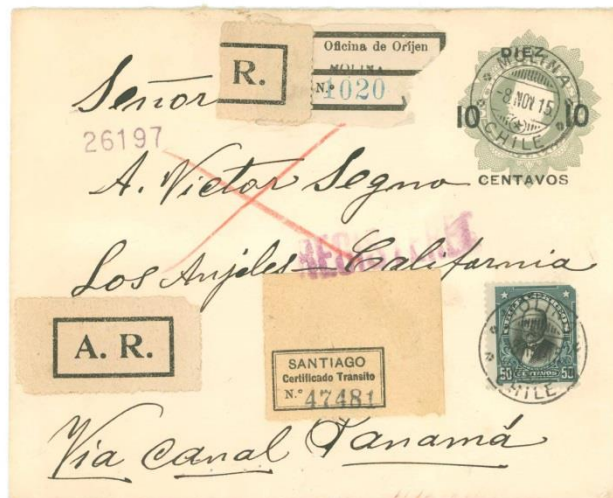 R.
Oficina de Oríjen
MOLINA
N.º 1020
DIEZ
MOLINA
-8 NOV 15
CHILE
10 10
CENTAVOS
Señor
26197
A. Victor Segno
REGISTERED
Los Anjeles - California
A. R.
SANTIAGO
Certificado Tránsito
N.º 47481
MOLINA
CHILE
50 CENTAVOS 50
Via Canal Panamá